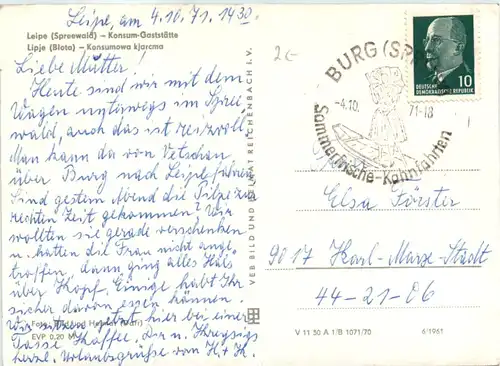 Leipe, am 4.10.71, 1430.
Leipe (Spreewald) – Konsum-Gaststätte
Lipje (Błota) – Konsumowa kjarcma
Liebe Mutter!
Heute sind wir mit dem
Wagen unterwegs im Spree
wald, auch das ist reizvoll.
Man kann da von Vetschau
über Burg nach Leipe fahren.
Sind gestern Abend die Pilze zur
rechten Zeit gekommen? Wir
wollten sie gerade verschenken
u. hatten die Frau nicht ange
troffen, dann ging alles Hals
über Kopf. Einige habt Ihr
sicher davon essen können.
Wir sitzen jetzt hier bei einer
Tasse Kaffee.
herzl. Urlaubsgrüße von
EVP 0,20 M
VEB BILD UND HEIMAT REICHENBACH I. V.
2€
BURG (SPR
-4.10. 71-18
Sommerfrische-Kahnfahrten
DEUTSCHE
DEMOKRATISCHE REPUBLIK
10
Elsa Förster
9017 Karl-Marx-Stadt
44-21-06
V 11 50 A 1/B 1071/70
6/1951